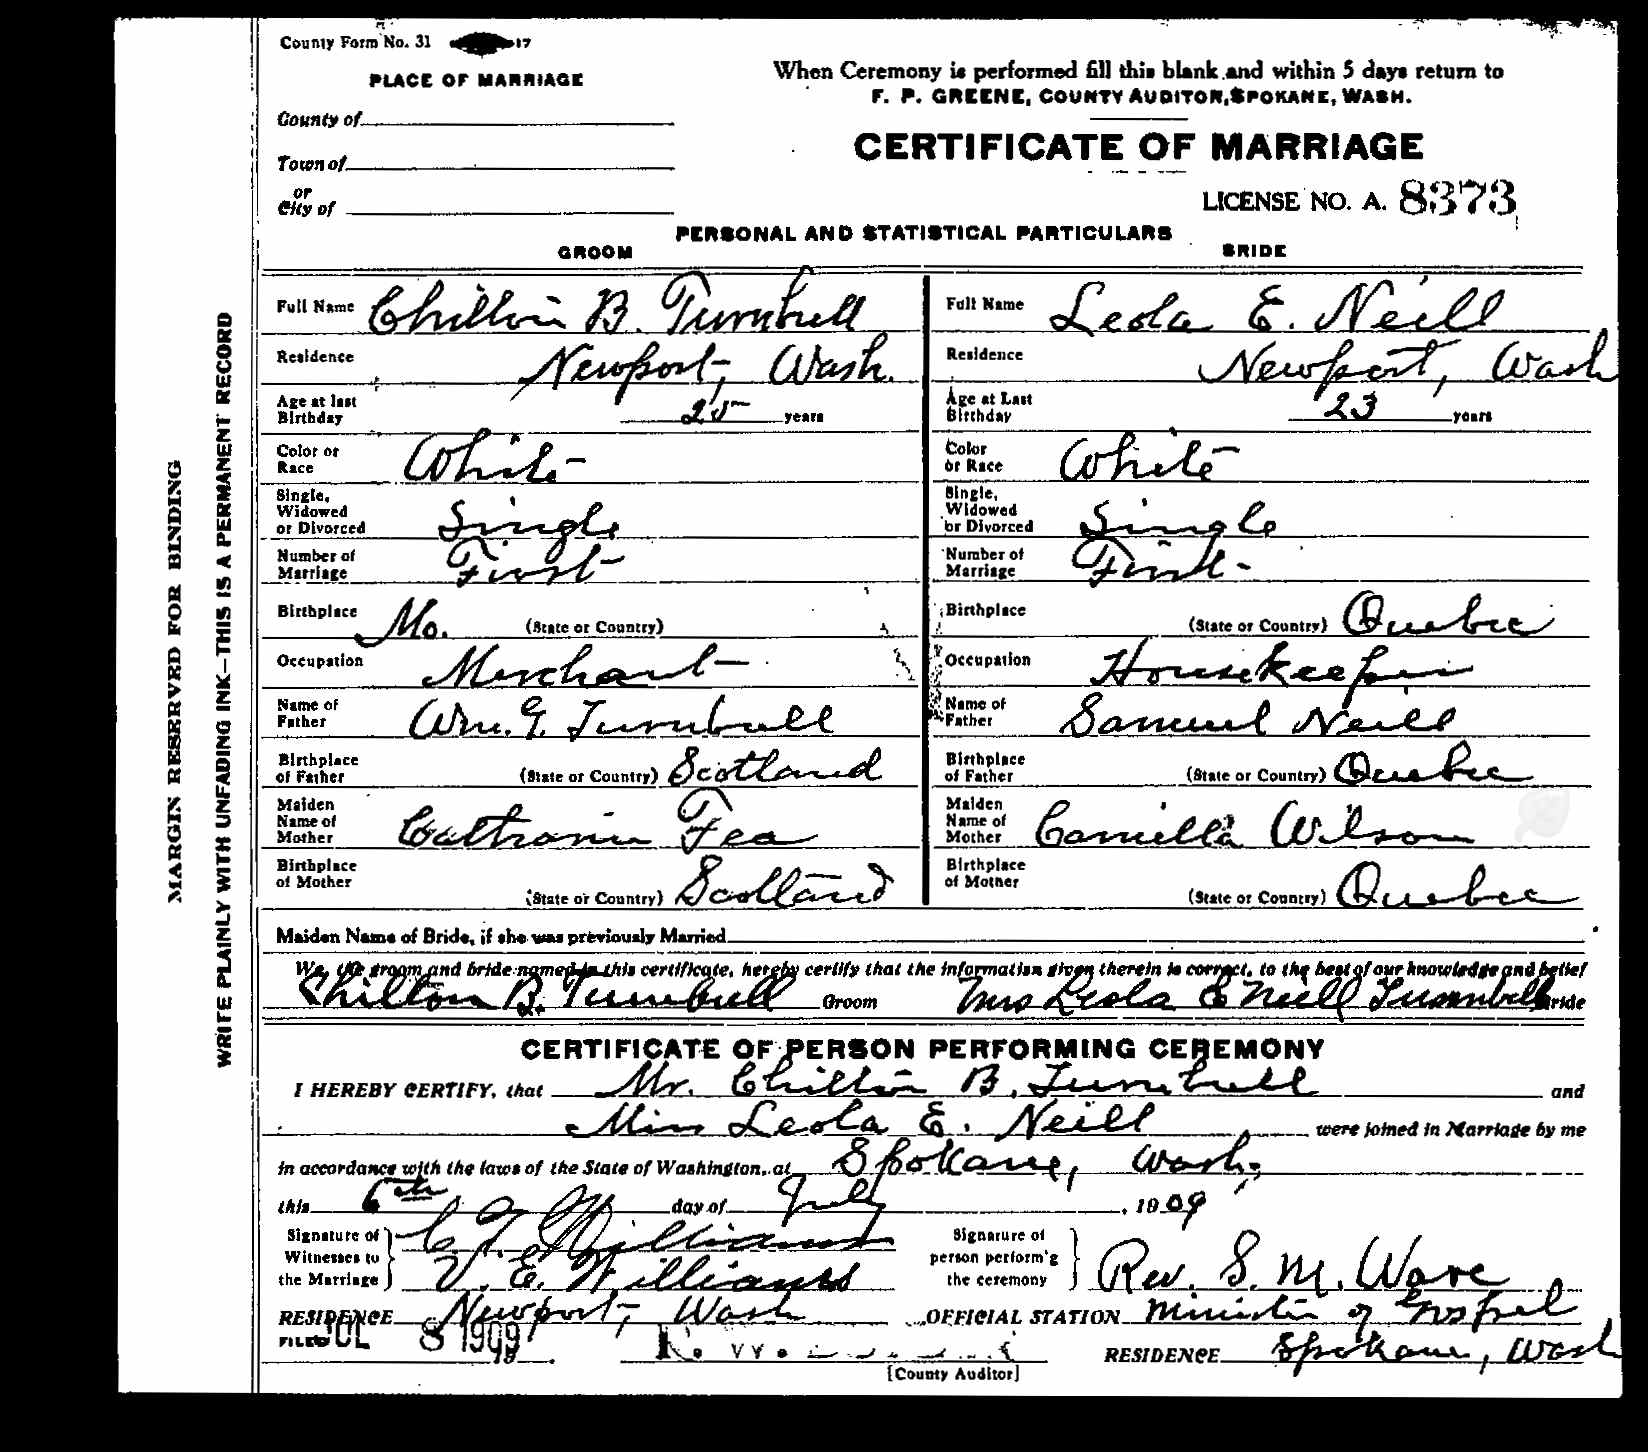 County Form No. 31 17
PLACE OF MARRIAGE
County of
Town of
or
City of
When Ceremony is performed fill this blank and within 5 days return to
F. P. GREENE, COUNTY AUDITOR, SPOKANE, WASH.
CERTIFICATE OF MARRIAGE
LICENSE NO. A. 8373
PERSONAL AND STATISTICAL PARTICULARS
GROOM BRIDE
MARGIN RESERVED FOR BINDING
WRITE PLAINLY WITH UNFADING INK—THIS IS A PERMANENT RECORD
Full Name Chilton B. Turnbull Full Name Leola E. Neill
Residence Newport, Wash. Residence Newport, Wash
Age at last Birthday 25 years Age at Last Birthday 23 years
Color or Race White Color or Race White
Single, Widowed or Divorced Single Single, Widowed or Divorced Single
Number of Marriage First Number of Marriage First
Birthplace Mo. (State or Country) Birthplace (State or Country) Quebec
Occupation Merchant Occupation Housekeeper
Name of Father Wm. G. Turnbull Name of Father Samuel Neill
Birthplace of Father (State or Country) Scotland Birthplace of Father (State or Country) Quebec
Maiden Name of Mother Cathranin Fea Maiden Name of Mother Camilla Wilson
Birthplace of Mother (State or Country) Scotland Birthplace of Mother (State or Country) Quebec
Maiden Name of Bride, if she was previously Married
We, the groom and bride named in this certificate, hereby certify that the information given therein is correct, to the best of our knowledge and belief
Chilton B. Turnbull Groom Mrs Leola E Neill Turnbull Bride
CERTIFICATE OF PERSON PERFORMING CEREMONY
I HEREBY CERTIFY, that Mr. Chilton B. Turnbull and
Miss Leola E. Neill were joined in Marriage by me
in accordance with the laws of the State of Washington, at Spokane, Wash.
this 6th day of July, 1909
Signature of Witnesses to the Marriage Williams
V. E. Williams
Signature of person perform'g the ceremony Rev. S. M. Ware
RESIDENCE Newport, Wash OFFICIAL STATION Minister of Gospel
FILED JUL 8 1909 19 .
RESIDENCE Spokane, Wash
[County Auditor]